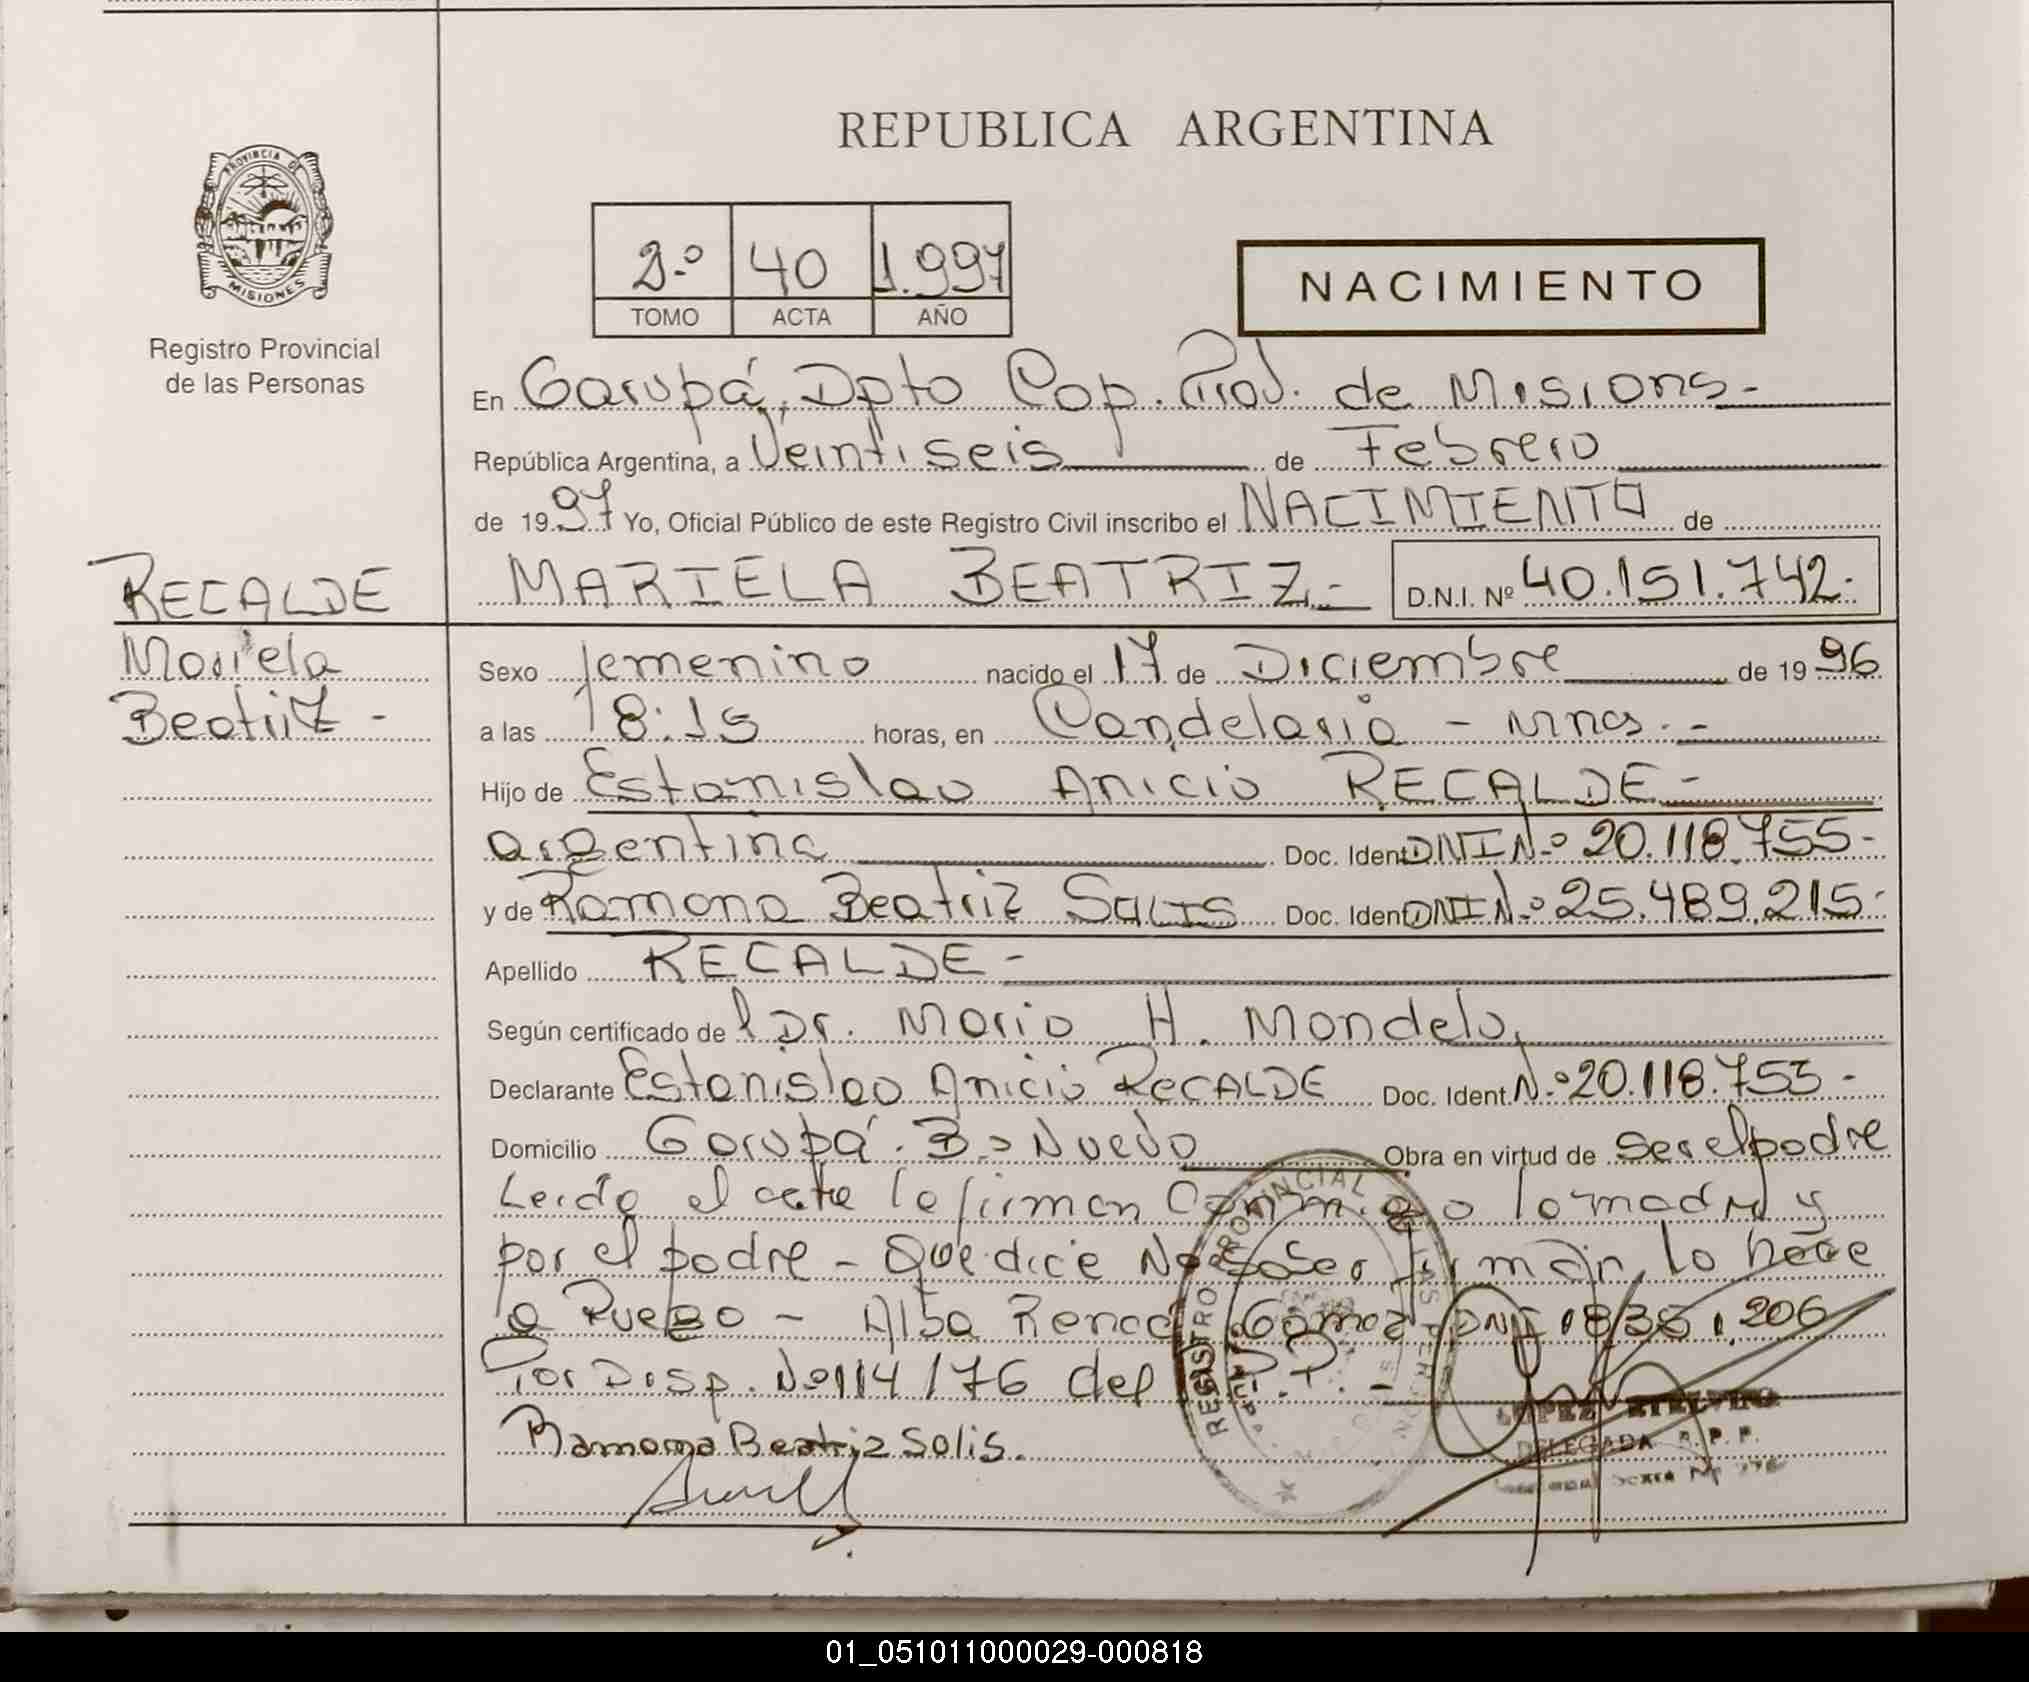 REPUBLICA ARGENTINA
PROVINCIA DE MISIONES
Registro Provincial
de las Personas
2.º 40 1.997
TOMO ACTA AÑO
NACIMIENTO
En Garupá, Dpto Cap. Prov. de Misions-
República Argentina, a Veintiseis de Febrero
de 1997 Yo, Oficial Público de este Registro Civil inscribo el NACIMIENTO de
MARIELA BEATRIZ- D.N.I. Nº 40.151.742.
RECALDE
Mariela
Beatriz -
Sexo femenino nacido el 17 de Diciembre de 1996
a las 18:15 horas, en Candelaria - Mnes.-
Hijo de Estanislao Anicio RECALDE-
argentina Doc. Ident. DNI N.º 20.118.755-
y de Ramona Beatriz SOLIS Doc. Ident. DNI N.º 25.489.215.
Apellido RECALDE-
Según certificado de l Dr. Mario H. Mondelo,
Declarante Estanislao Anicio RECALDE Doc. Ident. N.º 20.118.755-
Domicilio Garupá. Bº Nuevo Obra en virtud de ser el padre
Leida el acta la firman Conmigo la madre y
por el padre - Que dice No saber firmar, lo hace
a Ruego - Alba Gomez DNI
Por Disp. Nº 114/76 del P.P.-
Ramona Beatriz Solis.
REGISTRO PROVINCIAL DE LAS PERSONAS
LOPEZ ETELVINA
DELEGADA R.P.P.
01_051011000029-000818